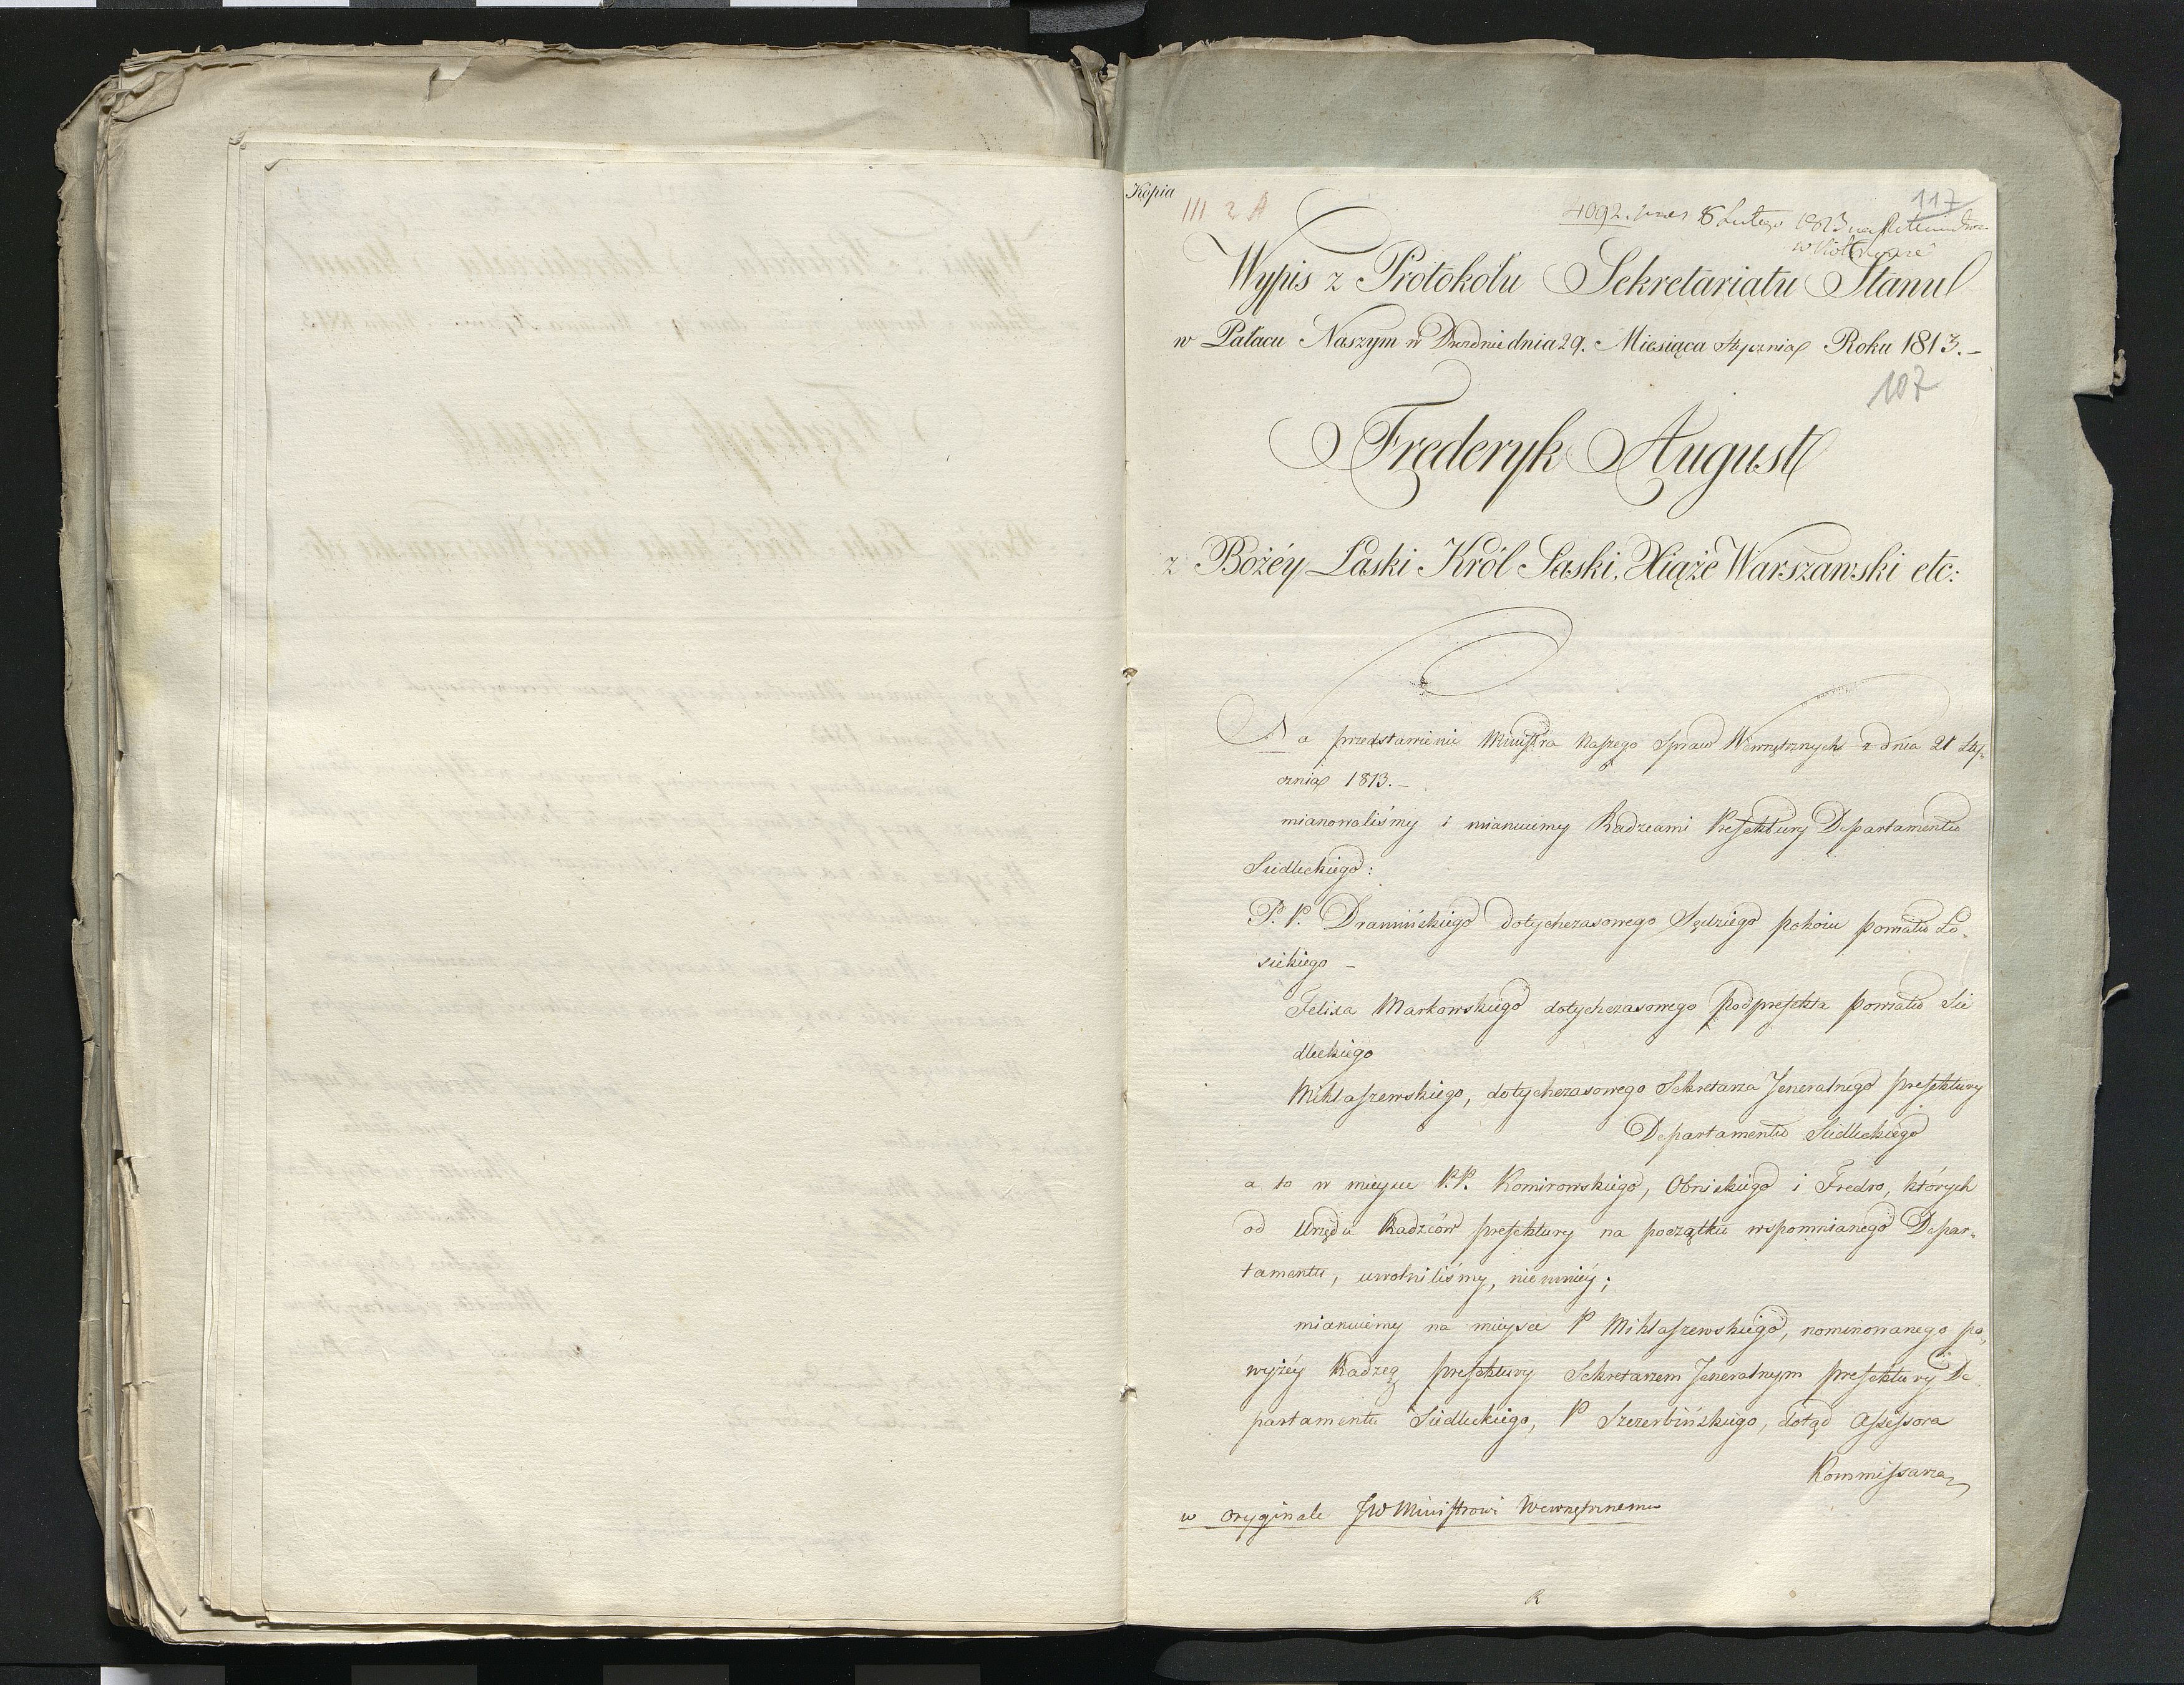 Kopia
III 2 A
117
4092. 8 Lutego 1813
Wypis z Protokołu Sekretariatu Stanu
w Pałacu Naszym w Dreznie dnia 29. Miesiąca Stycznia Roku 1813.–
107
Frederyk August
z Bożéy Łaski Król Saski, Xiąże Warszawski etc:
Na przedstawienie Ministra Naszego Spraw Wewnętrznych z dnia 21 Sty-
cznia 1813.–
mianowaliśmy i mianuiemy Radzcami Prefektury Departamentu
Siedleckiego:
P. P. Dramińskiego dotychczasowego Sędziego pokoiu powiatu Ło-
sickiego –
Felixa Markowskiego dotychczasowego Podprefekta powiatu Sie
dleckiego
Miklaszewskiego, dotychczasowego Sekretarza Jeneralnego prefektury
Departamentu Siedleckiego
a to w mieysce P.P. Komirowskiego, Obniskiego i Fredro, których
od Urzędu Radzców prefektury na początku wspomnianego Depar-
tamentu, uwolniliśmy, niemniéy;
mianuiemy na mieysce P Miklaszewskiego, nominowanego po-
wyżéy Radzcą prefektury Sekretarzem Jeneralnym prefektury De
partamentu Siedleckiego, P Szczerbińskiego, dotąd Assessora
Kommissarza
w oryginale JW Ministrowi Wewnętrznemu
R